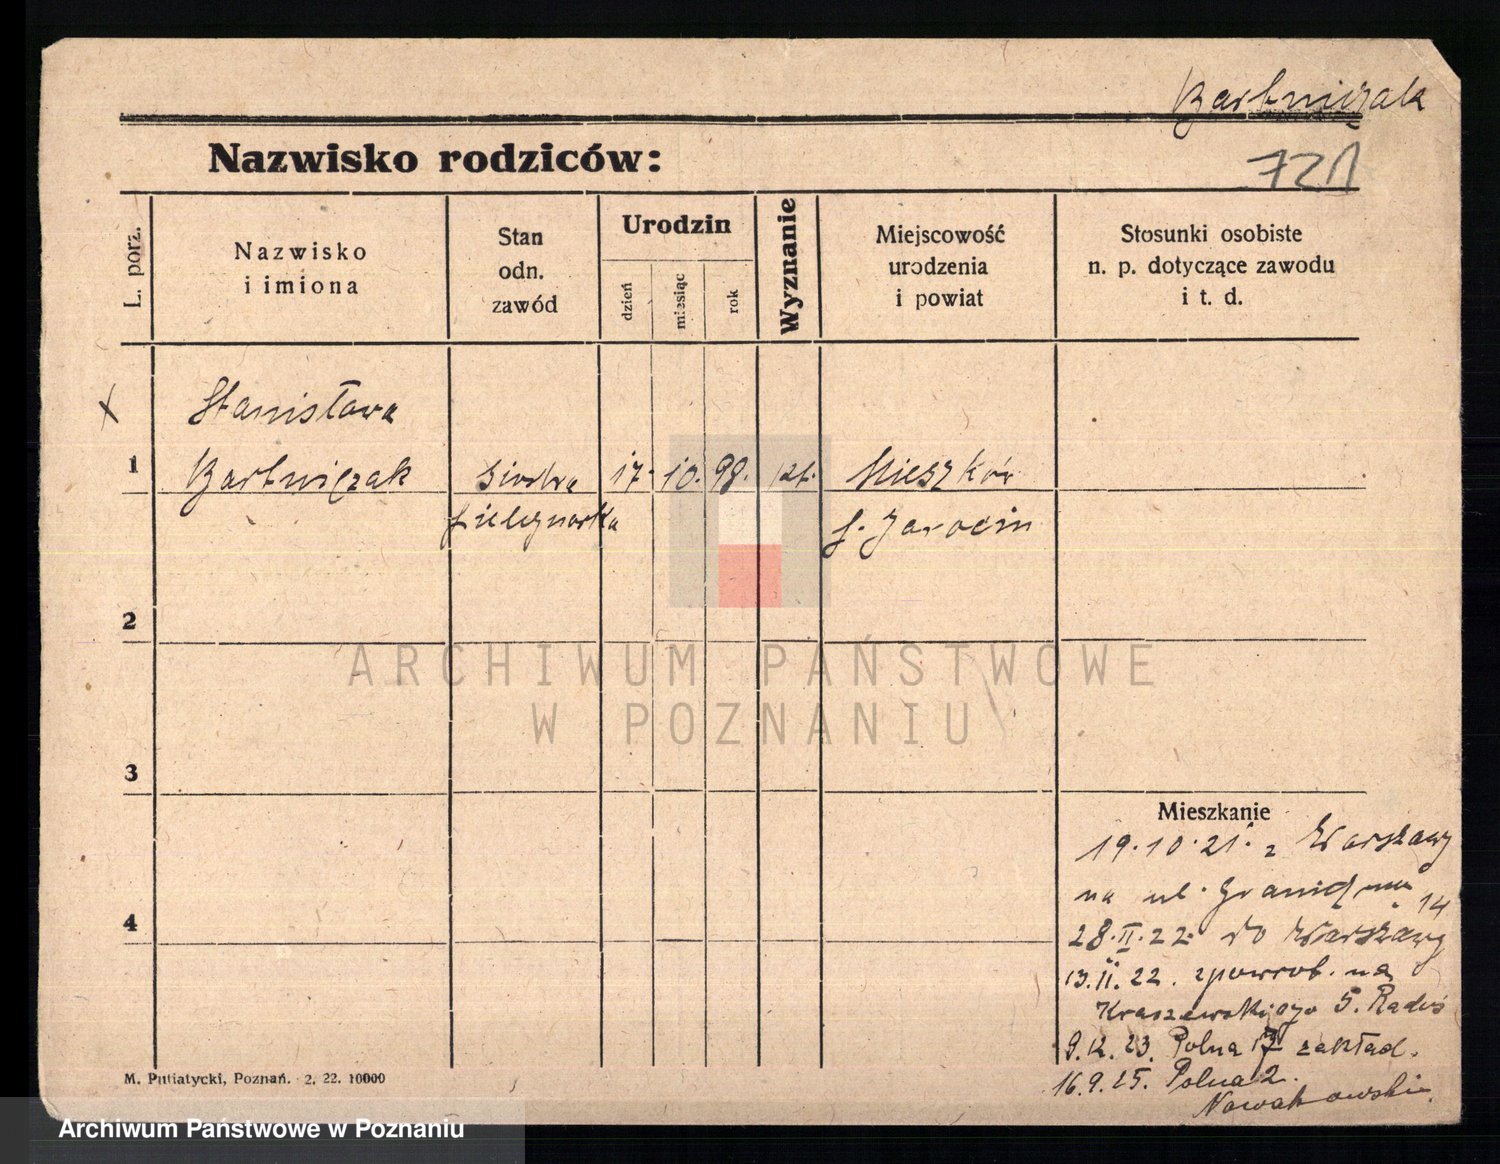 Bartniczak
Nazwisko rodziców:
721
L. porz.
Nazwisko
i imiona
Stan
odn.
zawód
Urodzin
dzień
miesiąc
rok
Wyznanie
Miejscowość
urodzenia
i powiat
Stosunki osobiste
n. p. dotyczące zawodu
i t. d.
x
Stanisława
1
Bartniczak
Siostra
17. 10. 98. kt.
Mieszków
pielęgniarka
p. Jarocin
2
ARCHIWUM PAŃSTWOWE
W POZNANIU
3
Mieszkanie
19.10.21. z Warszawy
na ul. 14
4
28.II.22 do Warszawy
13.II.22. zpowrot. na
Kraszewskiego 5.
9.12.23. Polna 17 zakład.
16.9.25. Polna 2.
Nowakowski.
M. Putiatycki, Poznań. 2. 22. 10000
Archiwum Państwowe w Poznaniu